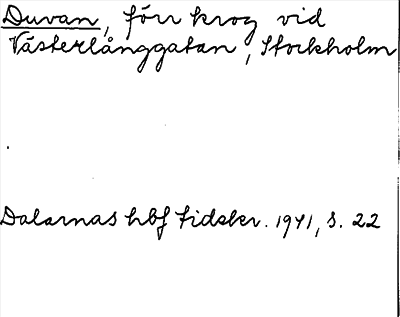 Duvan, förr krog vid
Västerlånggatan, Stockholm
Dalarnas hbf tidskr. 1941, s. 22